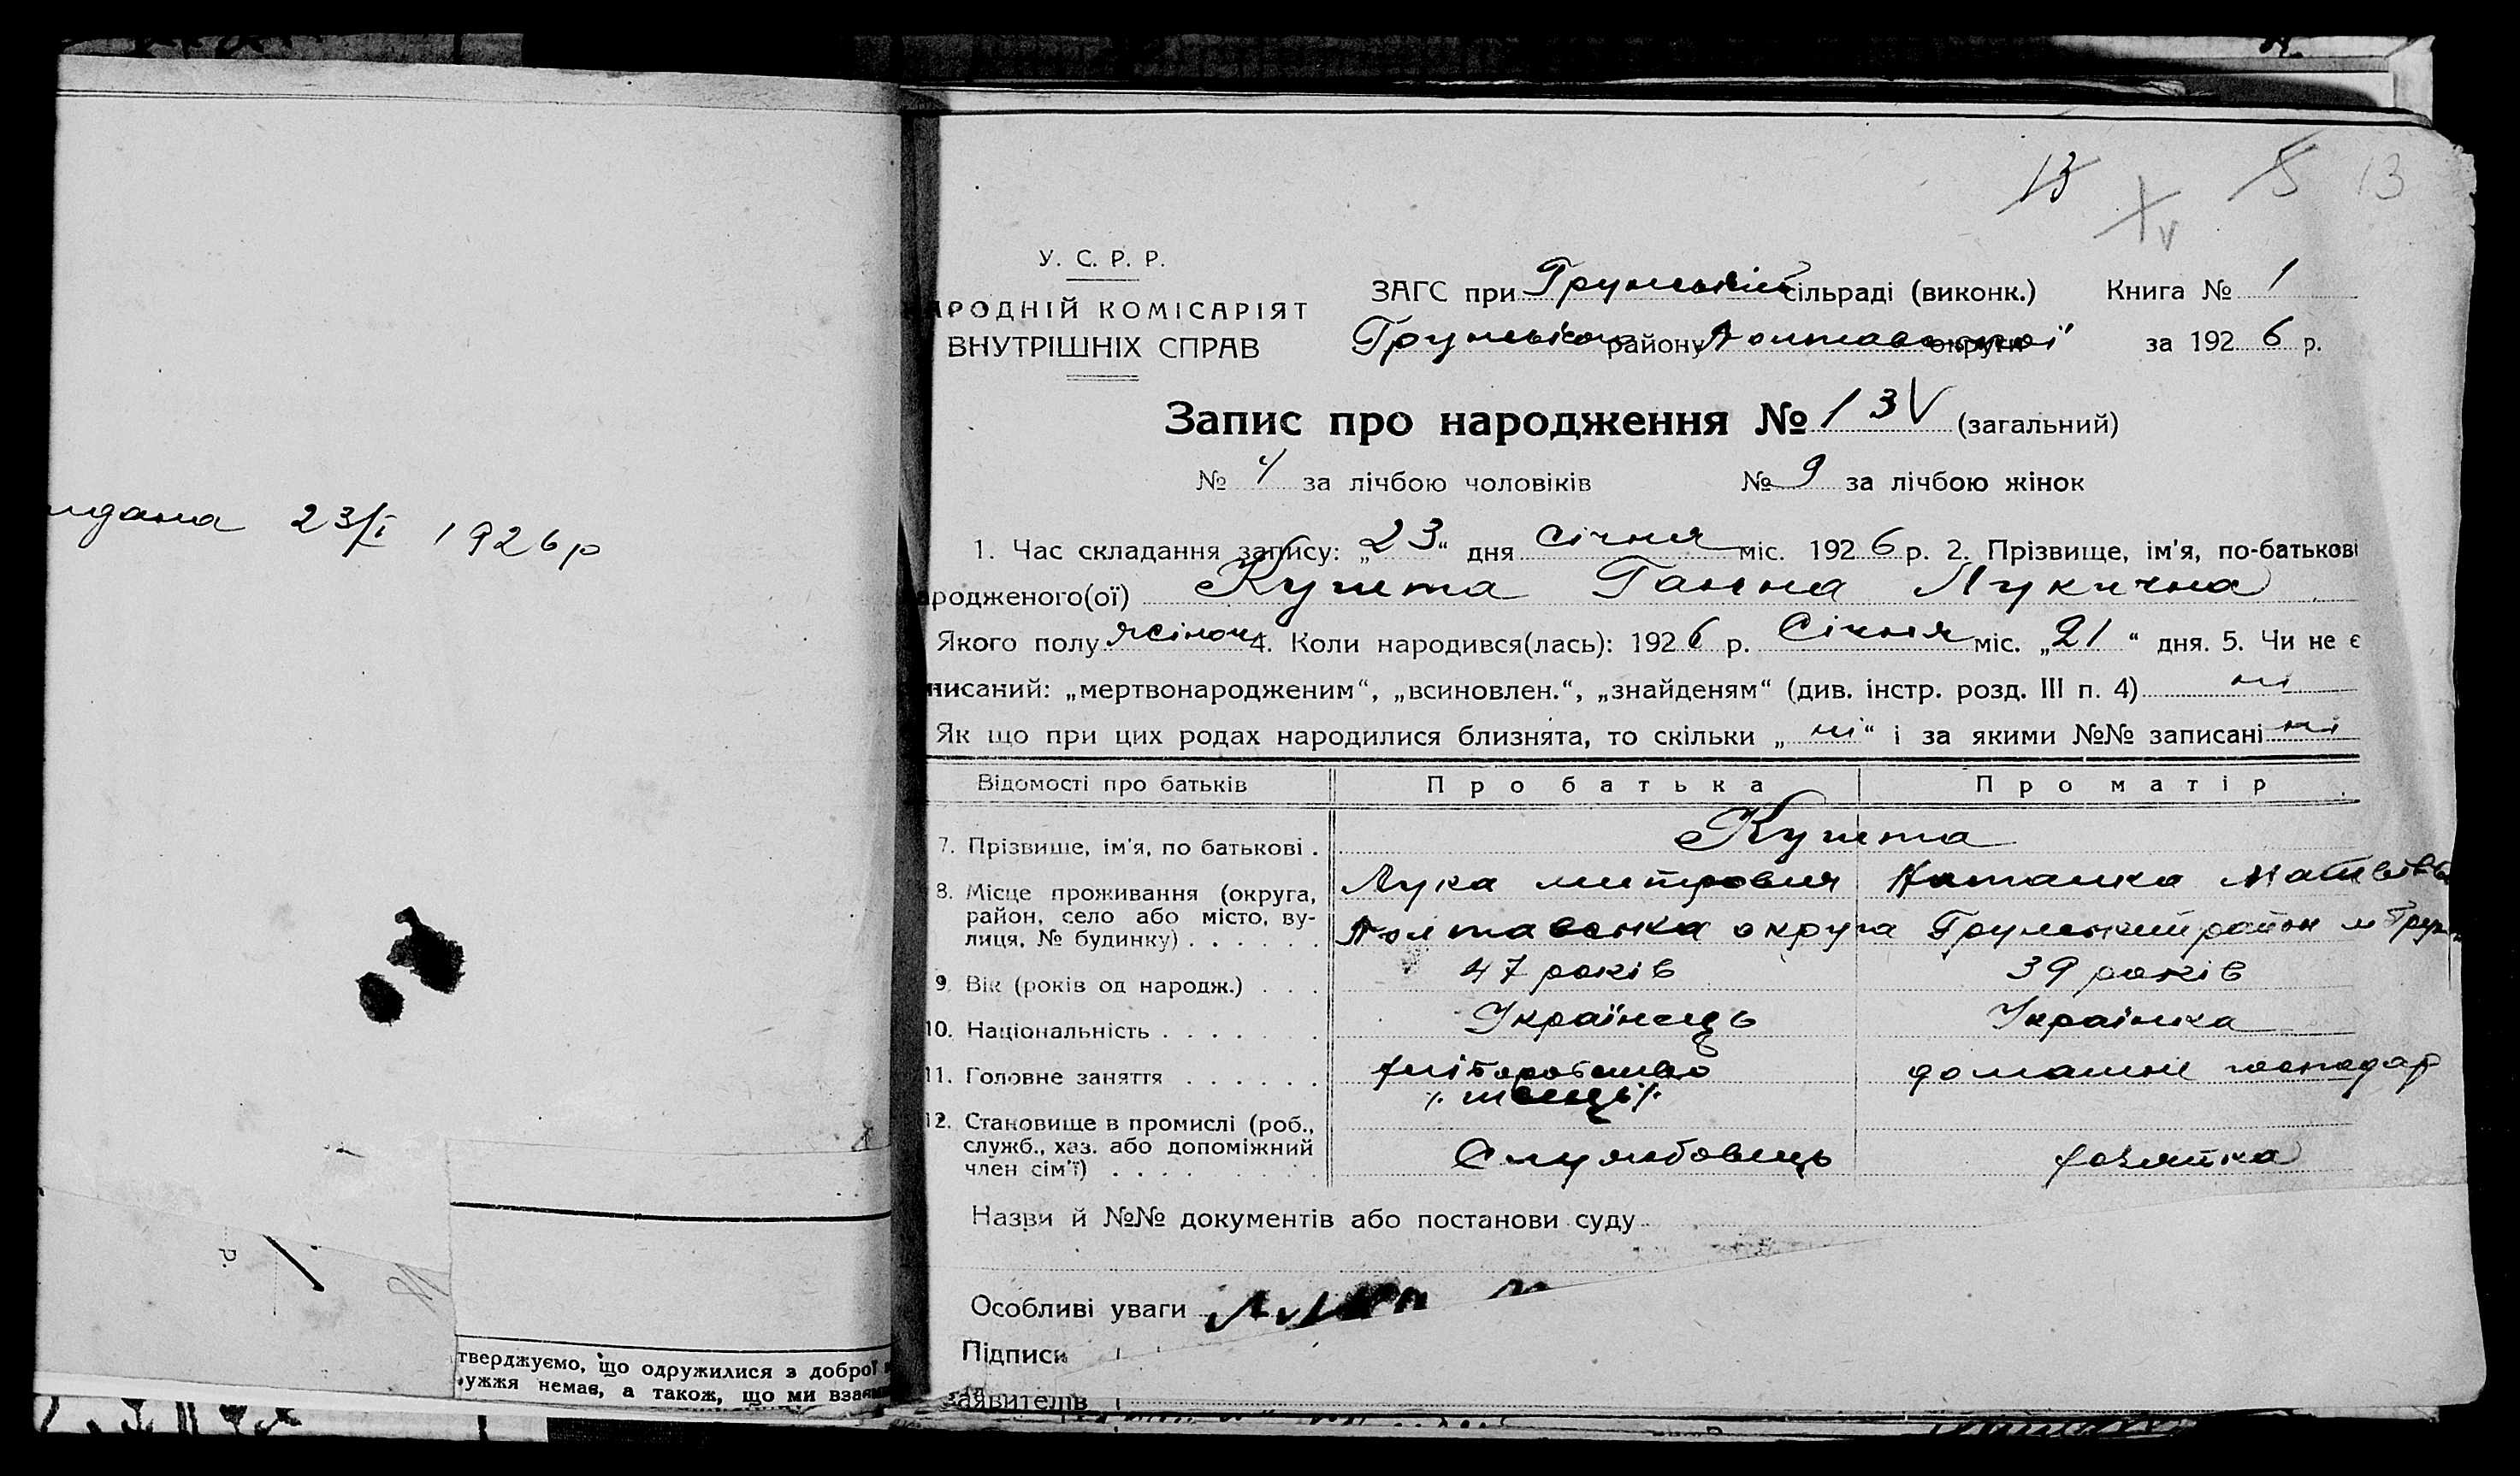 идана 23/I 1926р
р.
тверджуємо, що одружилися з доброї
ужжя немає, а також, що ми вза
13 5 13
У. С. Р. Р.
АРОДНІЙ КОМІСАРІЯТ
ВНУТРІШНІХ СПРАВ
ЗАГС при Грунській сільраді (виконк.) Книга № 1
Грунського району Полтавської округи за 1926 р.
Запис про народження № 13 V (загальний)
№ 4 за лічбою чоловіків № 9 за лічбою жінок
1. Час складання запису: „23“ дня Січня міс. 1926 р. 2. Прізвище, ім'я, по-батькові
родженого(ої) Кушта Ганна Лукична
Якого полу жіноч 4. Коли народився(лась): 1926 р. Січня міс. „21“ дня. 5. Чи не є
писаний: „мертвонародженим“, „всиновлен.“, „знайденям“ (див. інстр. розд. III п. 4) ні
Як що при цих родах народилися близнята, то скільки „ні“ і за якими №№ записані ні
Відомості про батьків Про батька Про матір
7. Прізвище, ім'я, по батькові . Кушта
Лука митрович Наталка Матвіївн
8. Місце проживання (округа, район, село або місто, вулиця, № будинку) . . . . . . Полтавська округа Грунський район м Грунь
9. Вік (років од народж.) . . . 47 років 39 років
10. Національність . . . . . . . Українець Українка
11. Головне заняття . . . . . . хліборобство домашнє господар
12. Становище в промислі (роб., служб., хаз. або допоміжний член сім'ї) . . . . Службовець хозяйка
Назви й №№ документів або постанови суду
Особливі уваги
Підписи
заявителів